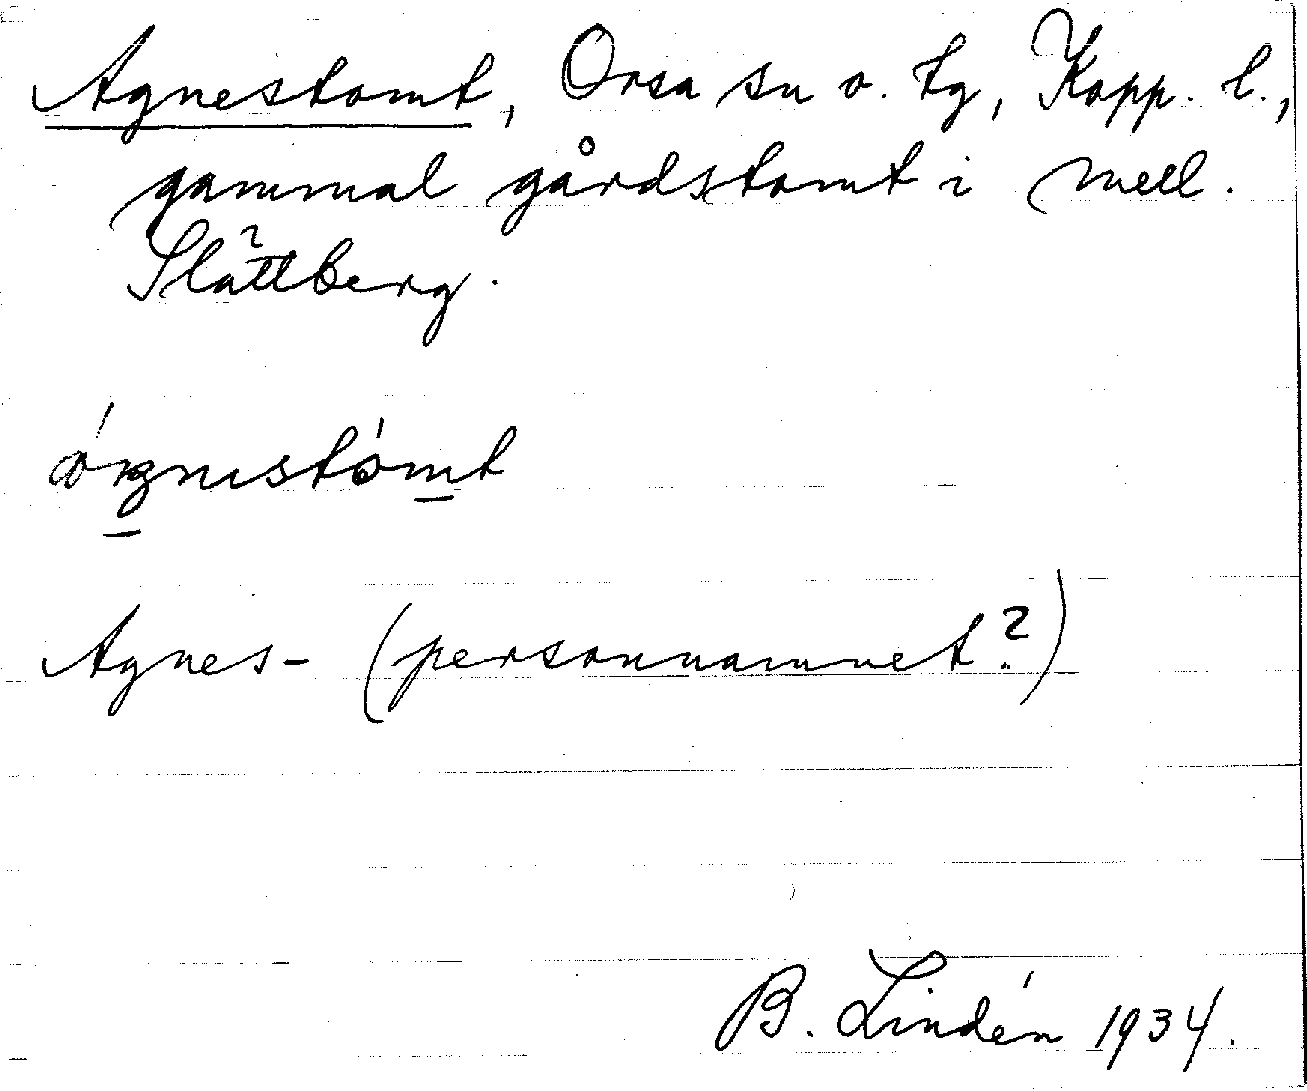 Agnestomt, Orsa sn o. tg, Kopp. l.,
gammal gårdstomt i mell.
Slättberg.
Agnes- (personnamnet?)
B. Lindén 1934.